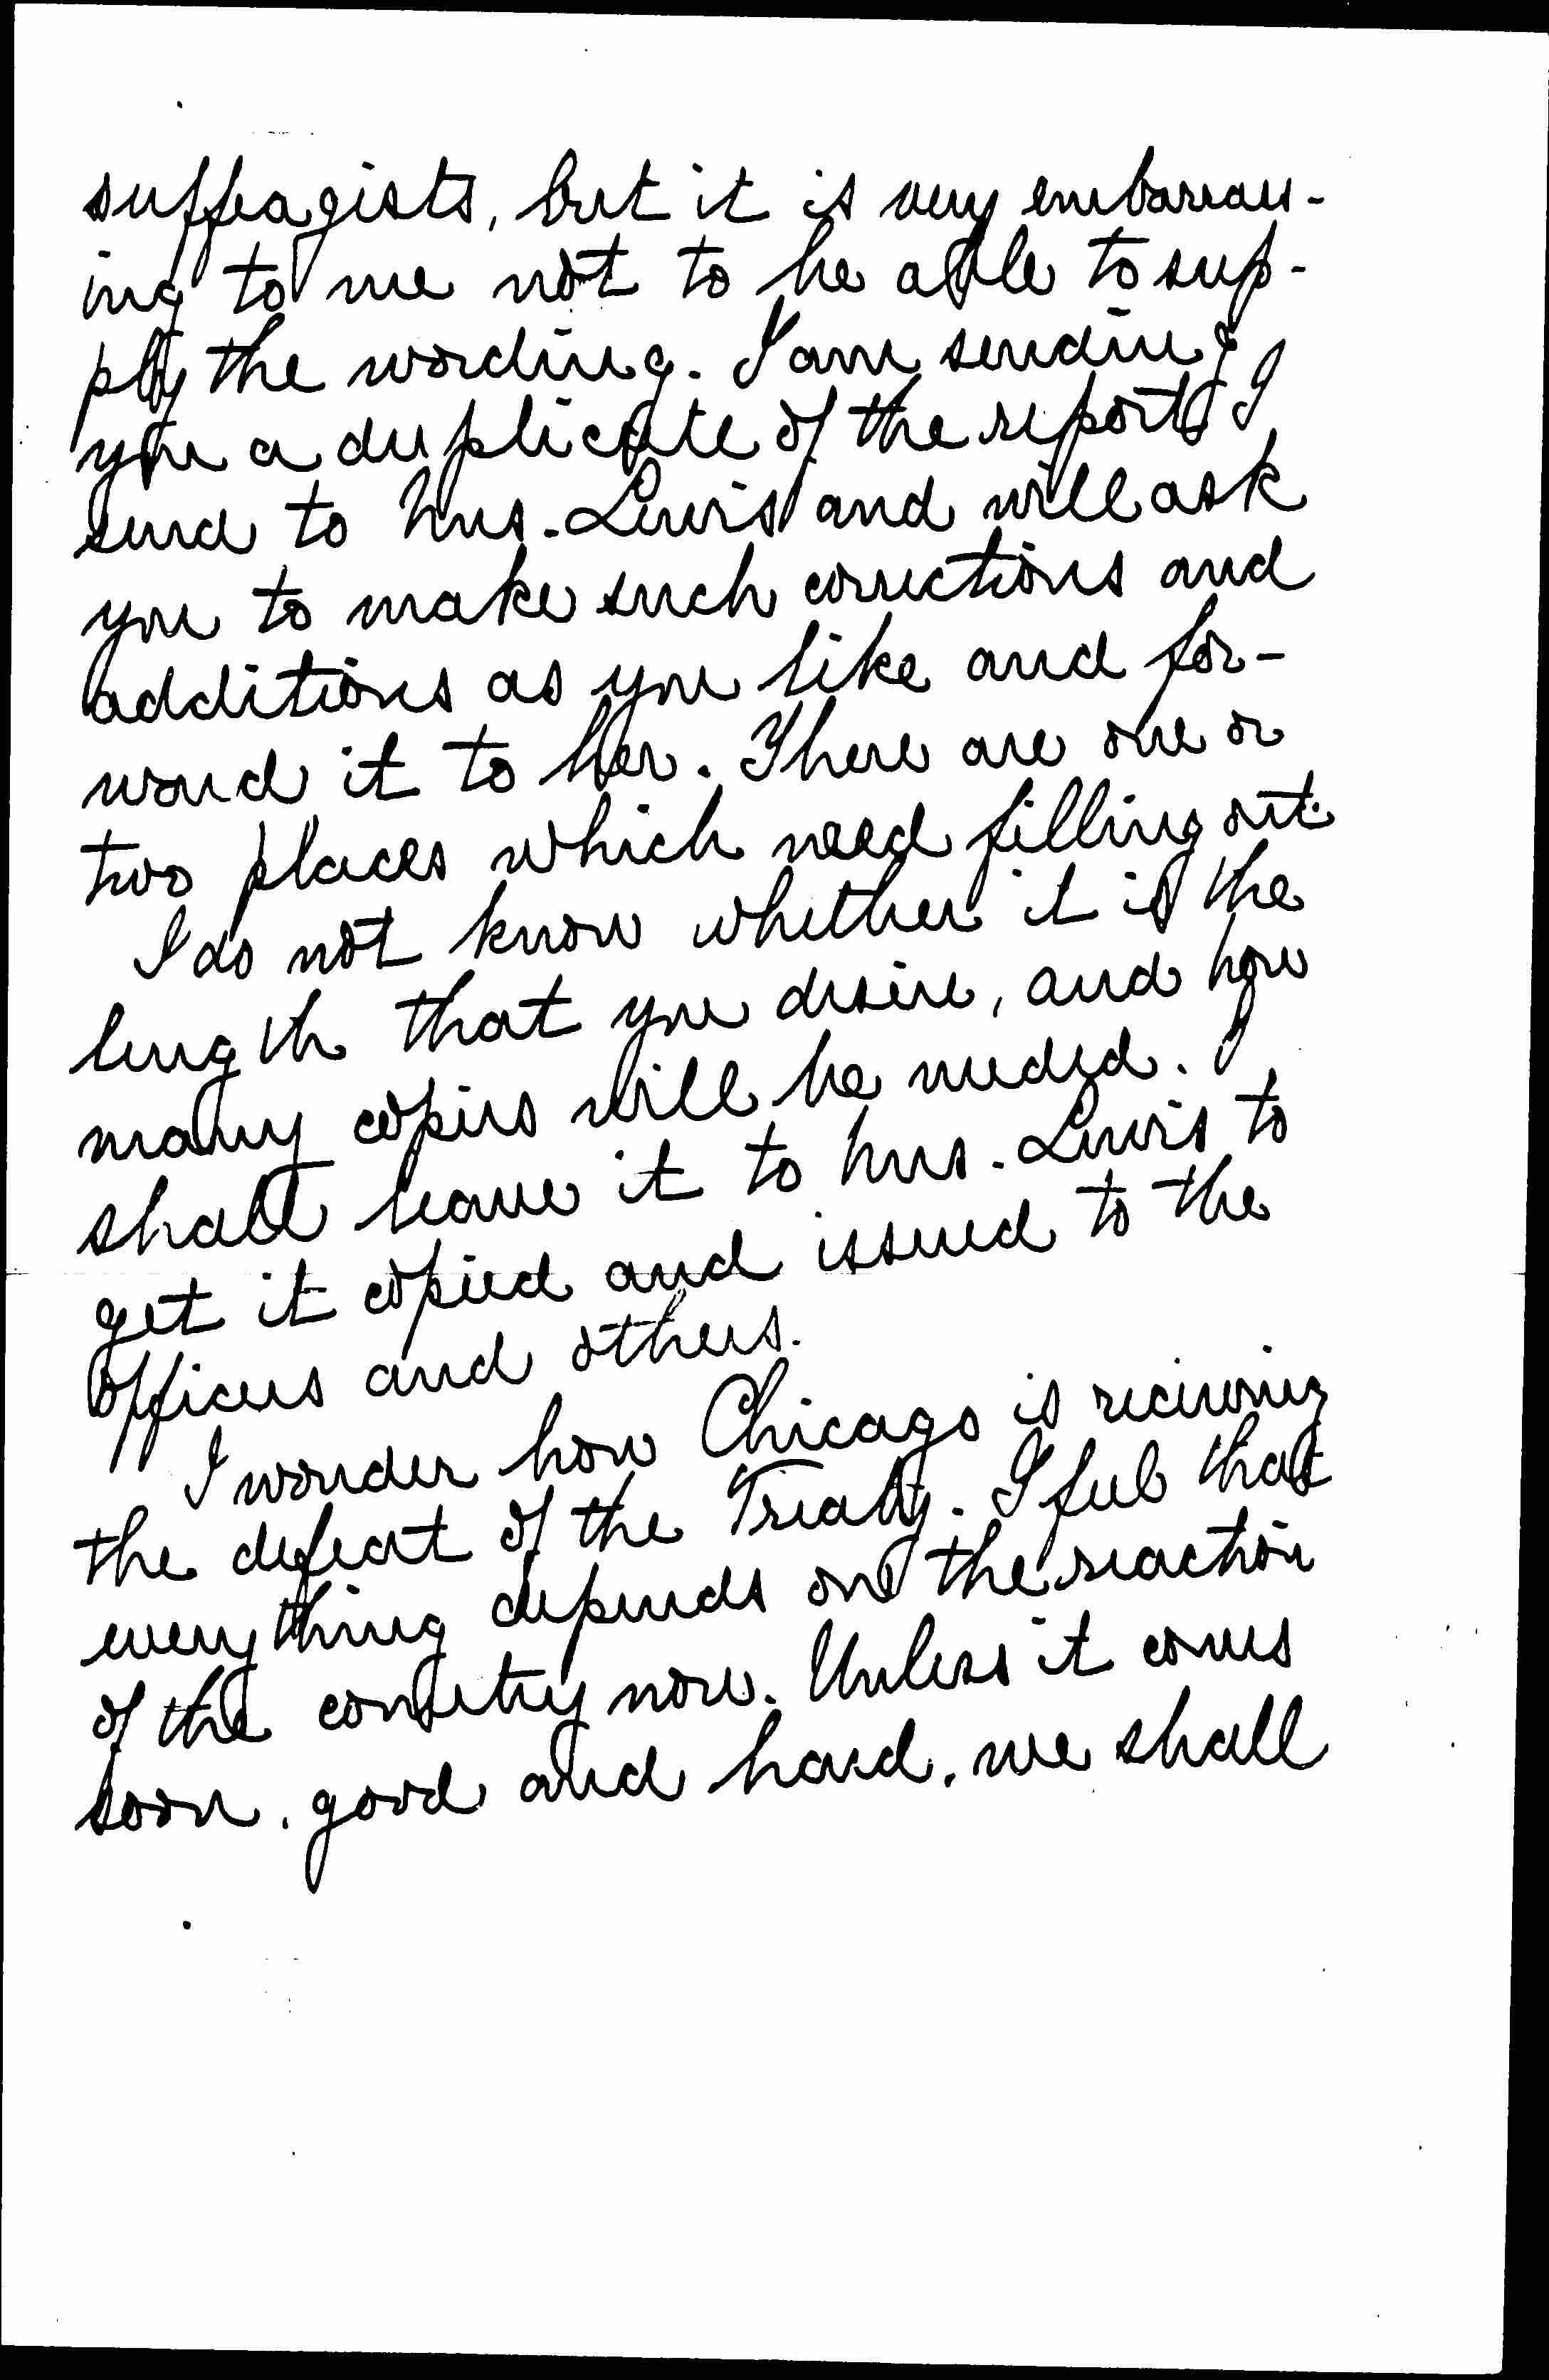 suffragists, but it is very embarrass-
ing to me not to be able to sup-
ply the wording. I am sending
you a duplicate of the report I
send to Mrs. Lewis and will ask
you to make such corrections and
additions as you like and for-
ward it to her. There are one or
two places which need filling out.
I do not know whether it is the
length that you desire, and how
many copies will be needed. I
shall leave it to Mrs. Lewis to
get it copied and issued to the
officers and others.
I wonder how Chicago is receiving
the defeat of the Treaty. I feel that
everything depends on the reaction
of the country now. Unless it comes
soon, good and hard, we shall